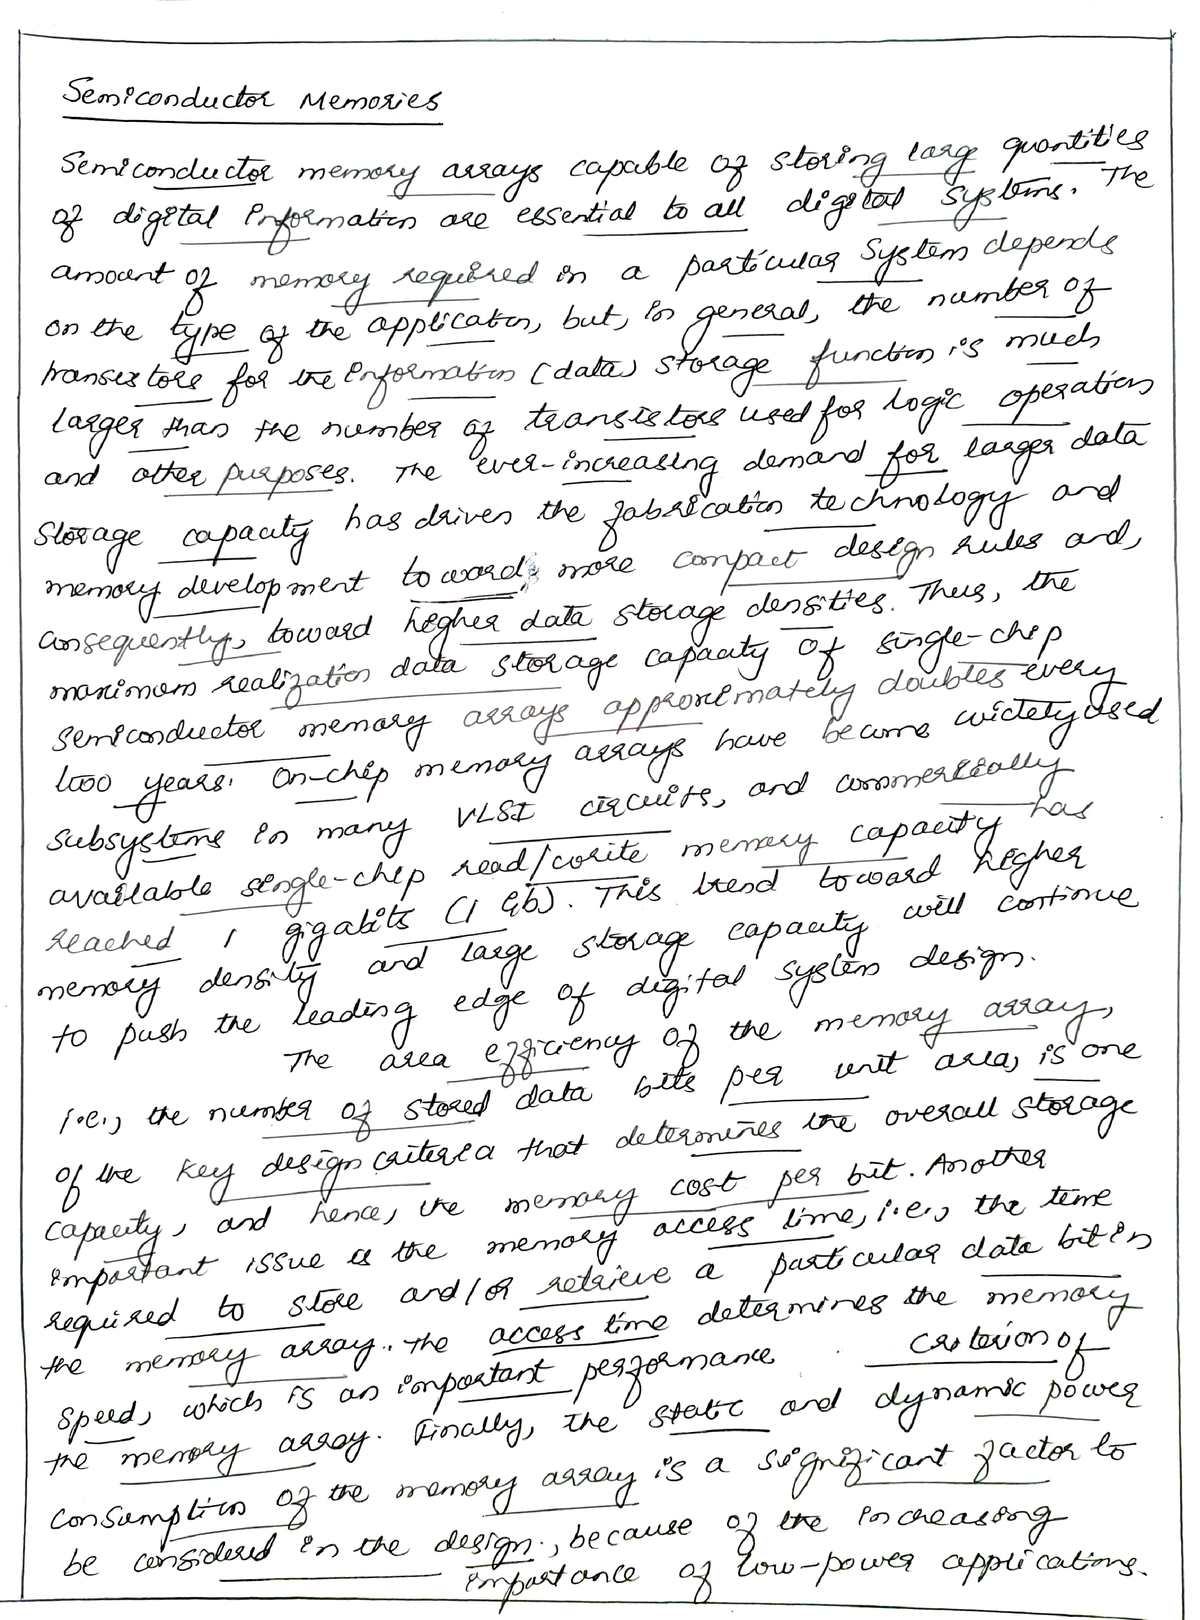 Semiconductor Memories
Semiconductor memory arrays capable of storing larg quantities
of digital Information are essential to all digital systems. The
amount of memory required in a particular System depends
on the type of the application, but, in general, the number of
transistors for the Information (data) storage function is much
larger than the number of transistors used for logic operation
and other purposes. The ever-increasing demand for larger data
storage capacity has driven the fabrication technology and
memory development toward, more compact design rules and,
consequently, toward higher data storage densities. Thus, the
maximum realization data storage capacity of single-chip
semiconductor memory arrays approximately doubles every
two years. On-chip memory arrays have become widely used
subsystems in many VLSI circuits, and commercially
available single-chip read/write memory capacity has
reached 1 gigabits (1 Gb). This trend toward higher
memory density and large storage capacity will continue
to push the leading edge of digital system design.
The area efficiency of the memory array,
i.e., the number of stored data bits per unit area, is one
of the key design criteria that determines the overall storage
capacity, and hence, the memory cost per bit. Another
important issue is the memory access time, i.e., the time
required to store and/or retrieve a particular data bit in
the memory array. The access time determines the memory
speed, which is an important performance criterion of
the memory array. Finally, the static and dynamic power
consumption of the memory array is a significant factor to
be considered in the design., because of the increasing
importance of low-power applications.